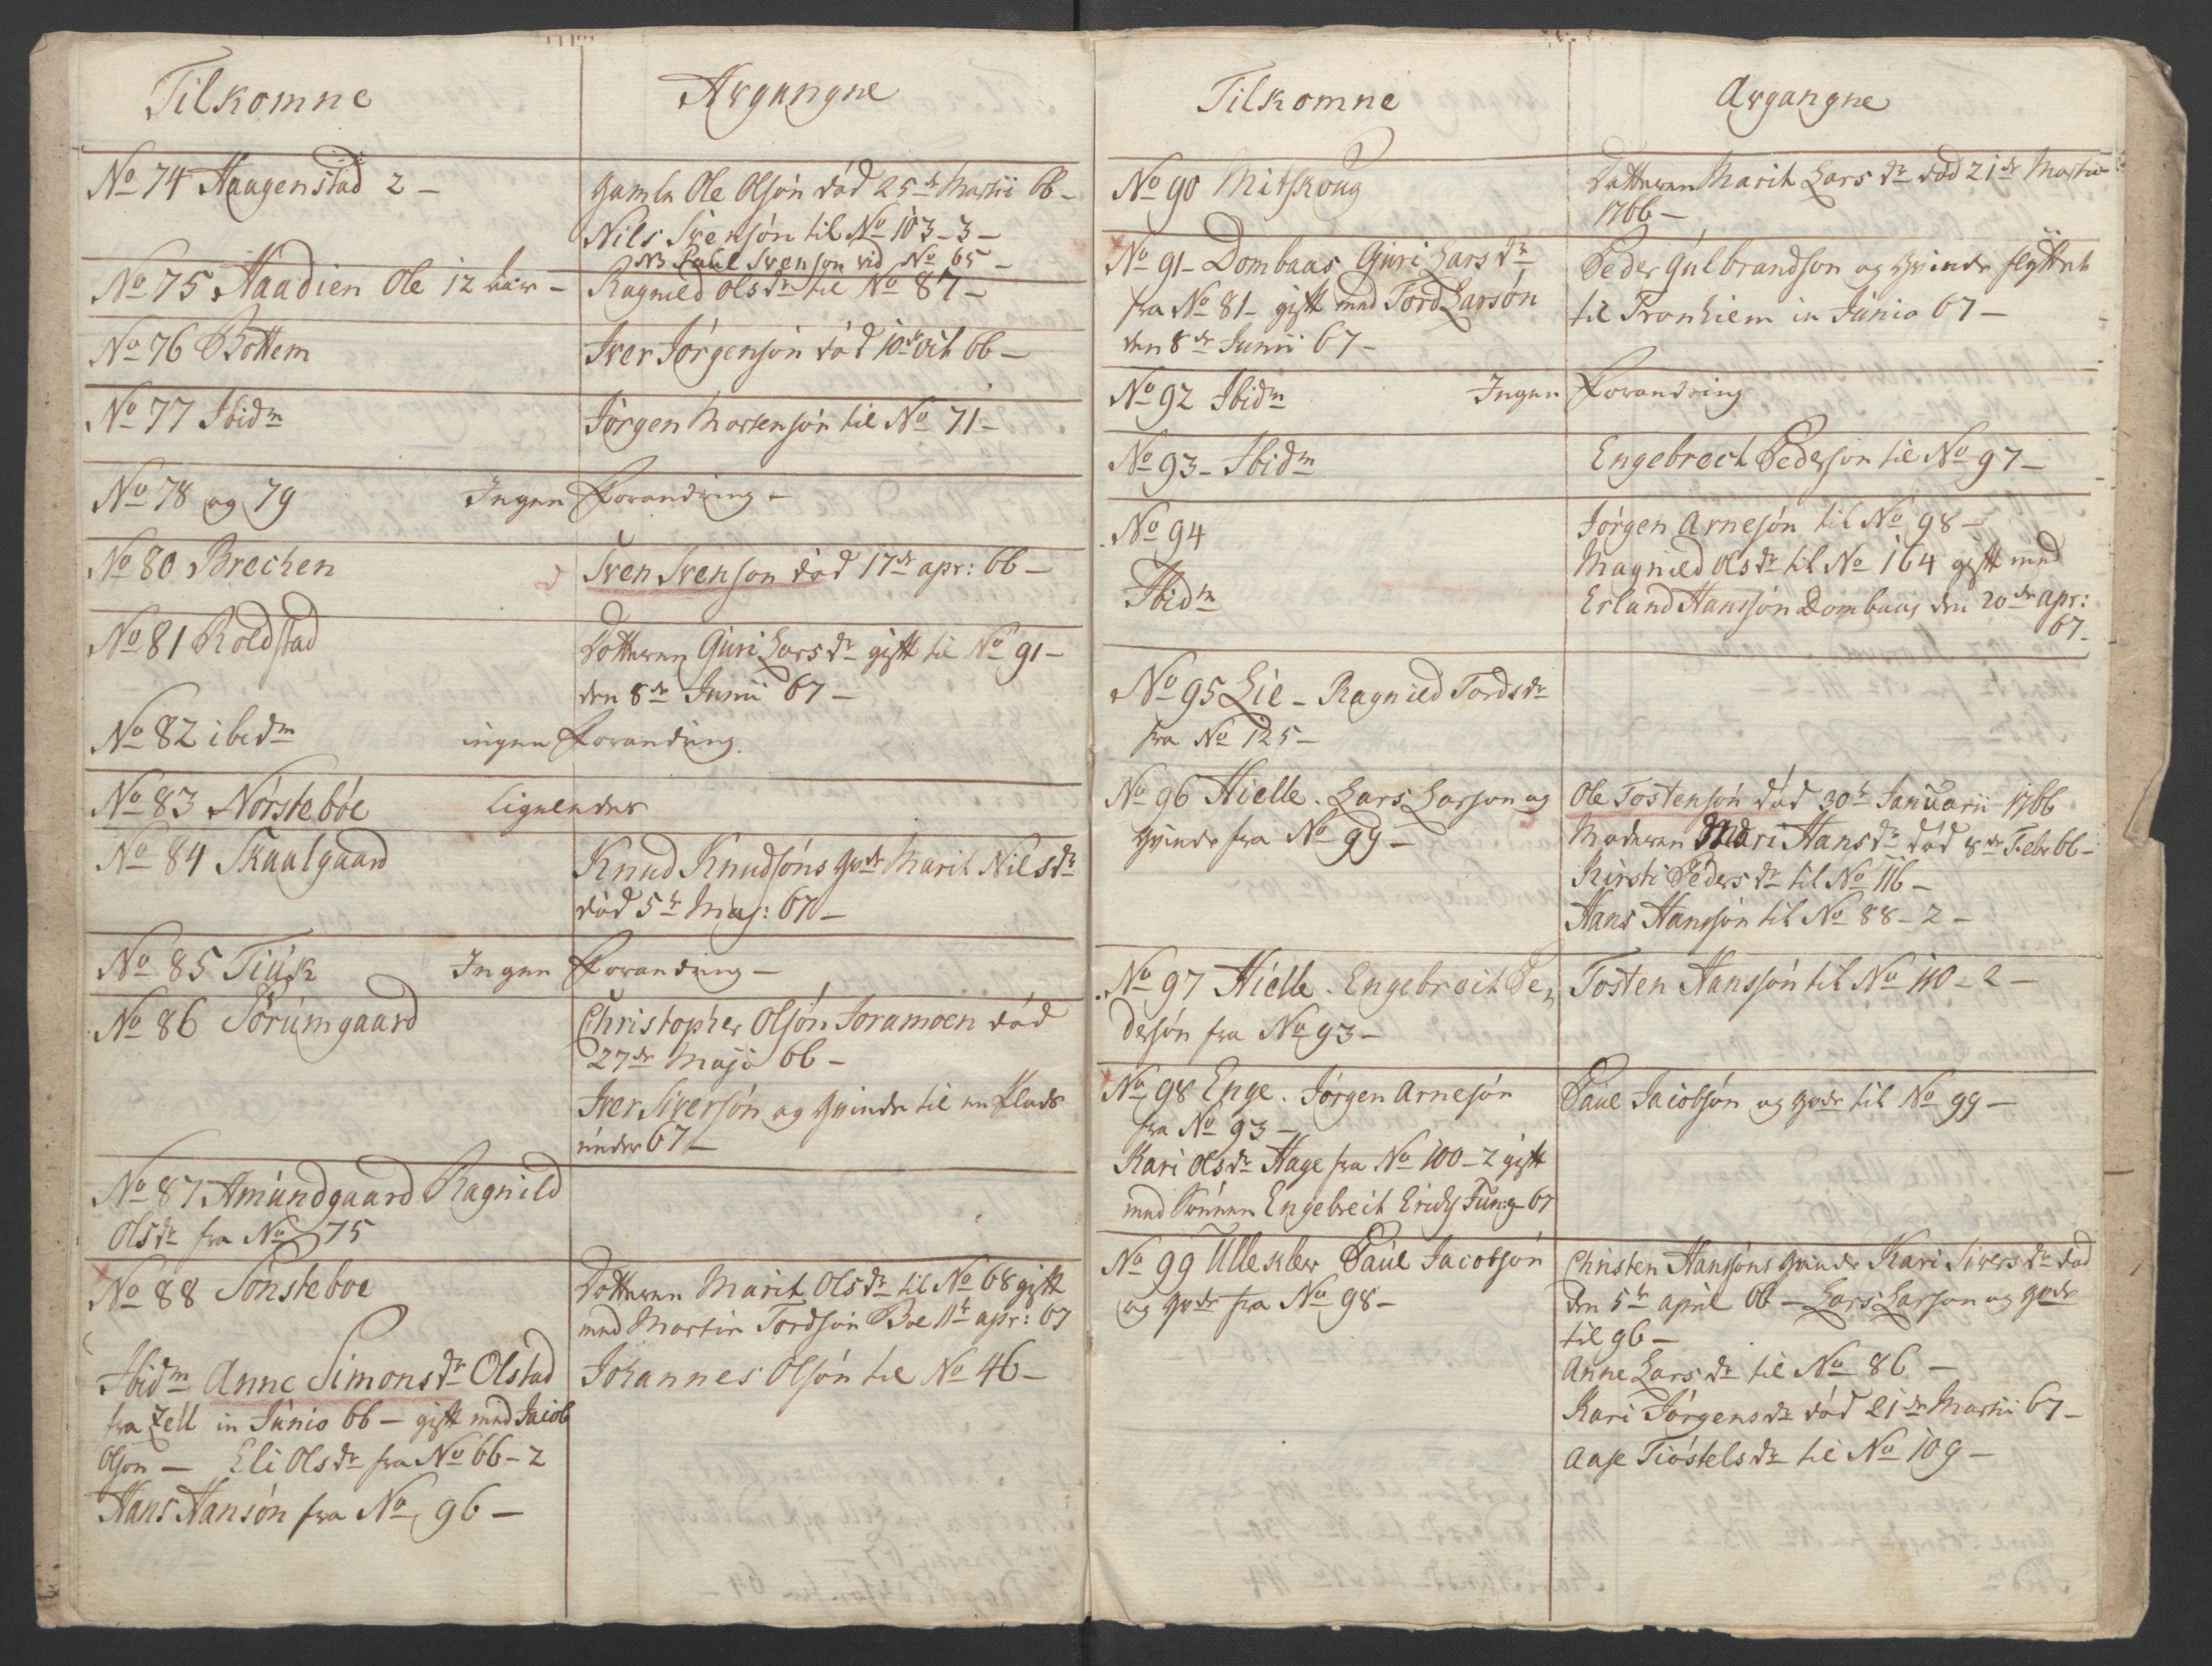 Tilkomne
Avgangne
No 74 Haagenstad 2 –
Gamle Ole Olsøn død 25de Martii 66 –
Nils Svensøn til No 103-3 –
NB Paul Svenson vid No 65 –
No 75 Haadien Ole 12
Ragnild Olsdr til No 87 –
No 76 Bottem
Iver Jørgensøn død 10de Oct 66 –
No 77 Ibidm
Jørgen Mortensøn til No 71 –
No 78 og 79 Ingen Forandring –
No 80 Brechen
Sven Svenson død 17de apr: 66 –
No 81 Roldstad
Datteren Guri Larsdr gift til No 91 –
den 8de Junii 67 –
No 82 ibidm ingen Forandring.
No 83 Nørstebøe Ligeledes
No 84 Skaalgaard
Knud Knudsøns Qvde Marit Nilsdr
død 5te Maj: 67 –
No 85 Tiúk Ingen Forandring –
No 86 Sørúmgaard
Christopher Olsøn Joramoen død
27de Majo 66 –
Iver Siversøn og Qvinde til en Plads
únder 67 –
No 87 Amúndgaard Ragnild
Olsdr fra No 75
No 88 Sønsteboe
Datteren Marit Olsdr til No 68 gift
med Martin Tordsøn Boe 11te apr: 67
Ibidm Anne Simonsdr Olstad
fra Zell in Júnio 66 – gift med Jacob
Olson – Eli Olsdr fra No 66-2
Hans Hansøn fra No 96 –
Johannes Olsøn til No 46 –
Tilkomne
Avgangne
No 90 Mitskoug
Datteren Marit Larsdr død 21de Martii
1766 –
No 91 – Dombaas Guri Larsdr
fra No 81 – gift med Tord Larsøn
den 8de Junii 67 –
Peder Gúlbrandson og Qvinde flyttet
til Tronhiem in Júnio 67 –
No 92 Ibidm Ingen Forandring
No 93 – Ibidm
Engebrect Pedersøn til No 97 –
No 94
Ibidm
Jørgen Arnesøn til No 98 –
Magnild Olsdr til No 164 gift med
Erland Hansøn Dombaas den 20de apr:
67 –
No 95 Lie – Ragnild Tordsdr
fra No 125 –
No 96 Hielle. Lars Larson og
Qvinde fra No 99 –
Ole Tostensøn død 30te Januarii 1766
Moderen Mari Hansdr død 8de Febr 66 –
Kirsti Pedersdr til No 116 –
Hans Hansøn til No 88-2 –
No 97 Hielle. Engebrect Pe-
dersøn fra No 93 –
Tosten Hansøn til No 110-2 –
No 98 Enge. Jørgen Arnesøn
fra No 93 –
Kari Olsdr Hage fra No 100-2 gift
med Sønnen Engebrect Erichs 67
Paul Jacobsøn og Qvde til No 99 –
No 99 Ulleklev Paul Jacobsøn
og Qvde fra No 98 –
Christen Hansøns Qvinde Kari Siversdr død
den 5te april 66 – Lars Larson og Qvde
til 96 –
Anne Larsdr til No 86 –
Kari Jørgensdr død 21de Martii 67 –
Aase Tiøstelsdr til No 109 –